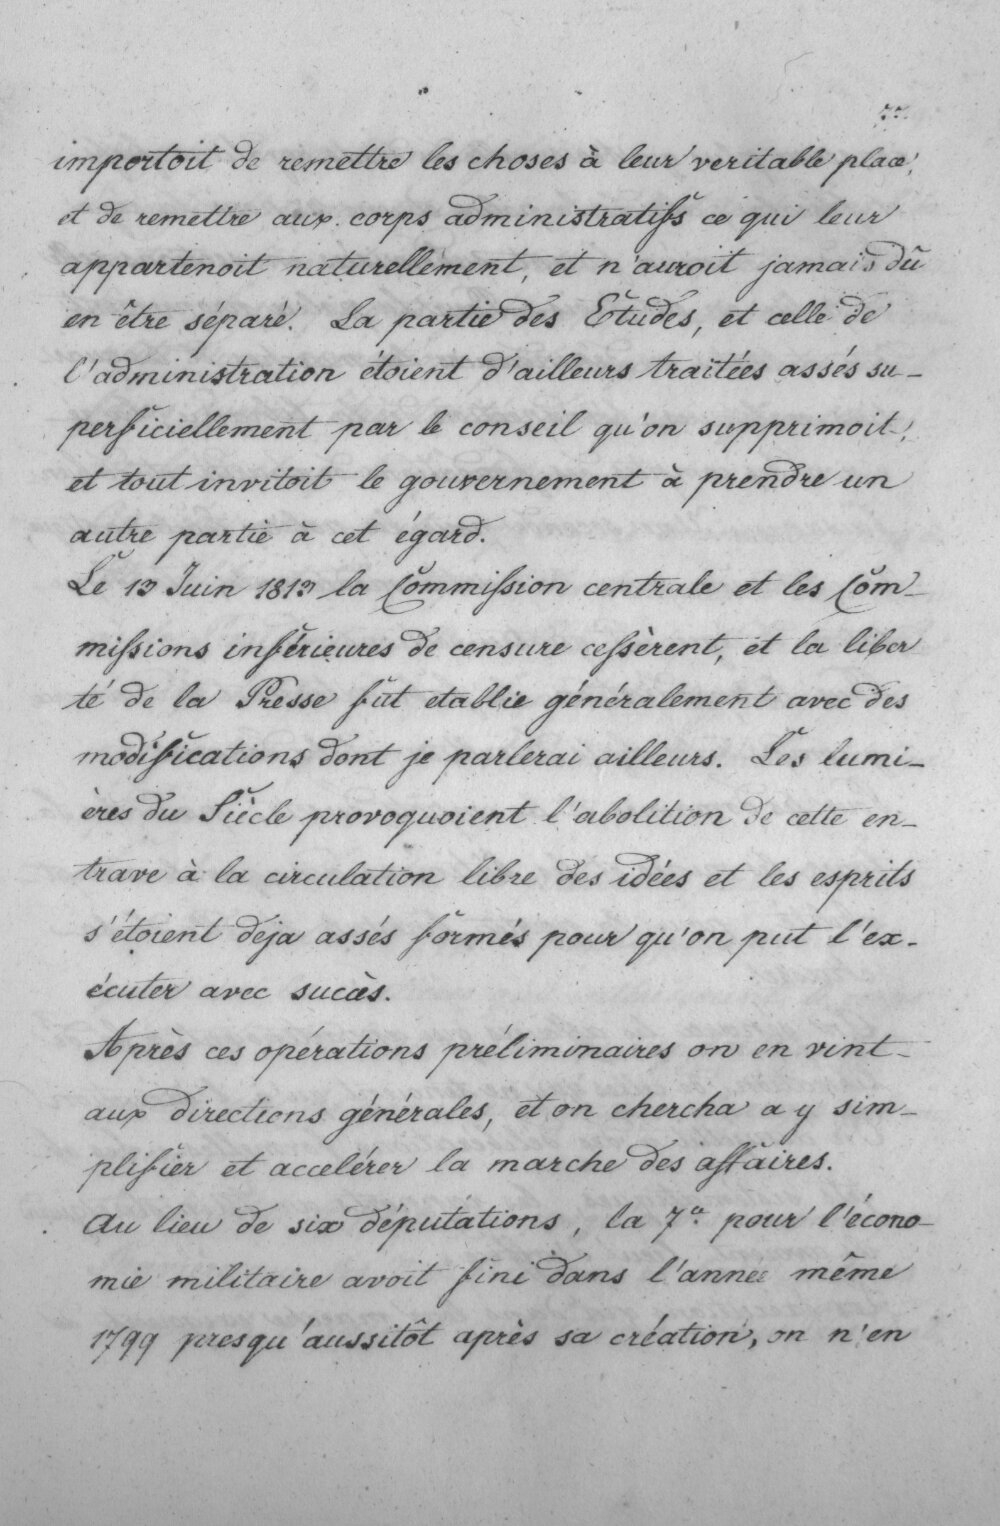 77.
importoit de remettre les choses à leur veritable place,
et de remettre aux corps administratifs ce qui leur
appartenoit naturellement, et n'auroit jamais dû
en être séparé. La partie des Etudes, et celle de
l'administration étoient d'ailleurs traitées assés su-
perficiellement par le conseil qu'on supprimoit,
et tout invitoit le gouvernement à prendre un
autre partie à cet égard.
Le 13 Juin 1813 la Commission centrale et les Com-
missions inférieures de censure cessèrent, et la liber
té de la Presse fut etablie généralement avec des
modifications dont je parlerai ailleurs. Les lumi-
ères du Siècle provoquoient l'abolition de cette en-
trave à la circulation libre des idées et les esprits
s'étoient deja assés formés pour qu'on put l'ex-
écuter avec succès.
Après ces opérations préliminaires on en vint
aux directions générales, et on chercha a y sim-
plifier et accelérer la marche des affaires.
Au lieu de six députations, la 7e pour l'écono-
mie militaire avoit fini dans l'année même
1799 presqu'aussitôt après sa création, on n'en